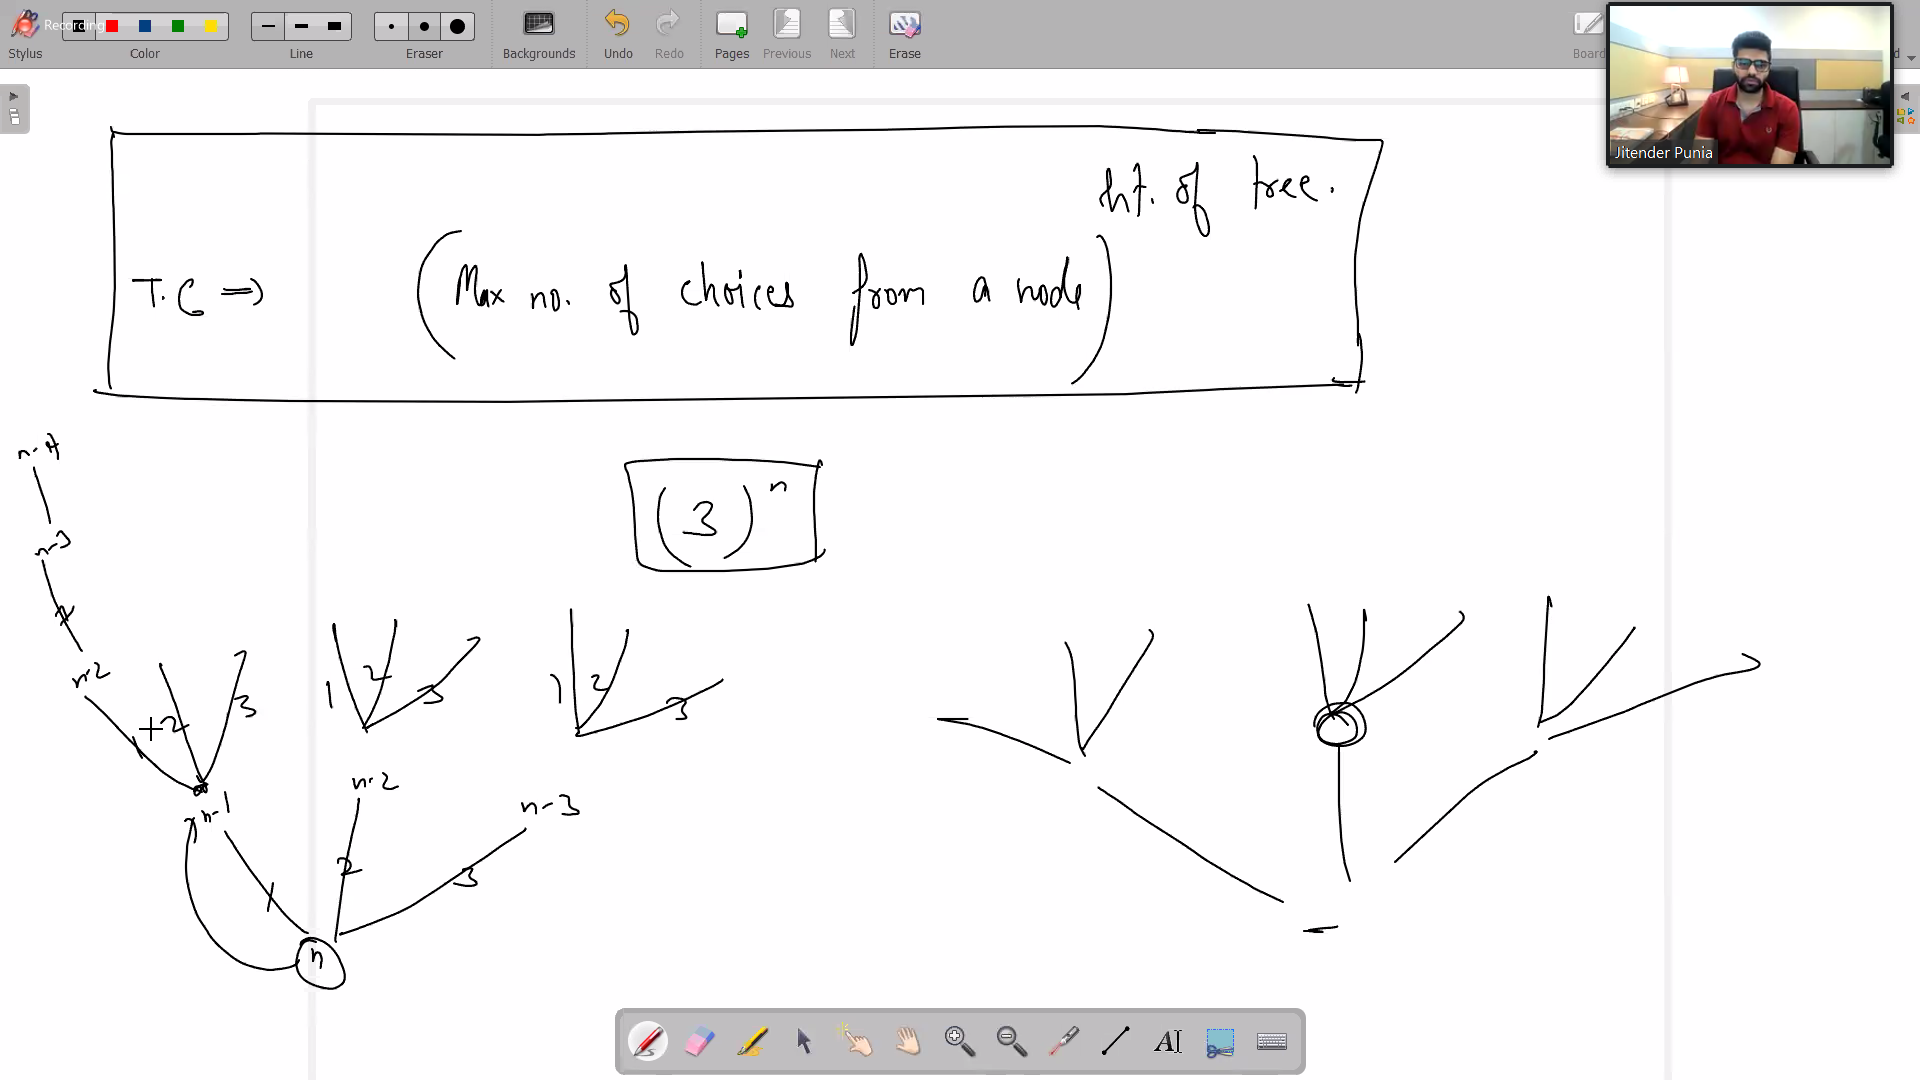 Recording
Stylus
Color
Line
Eraser
Backgrounds
Undo
Redo
Pages
Previous
Next
Erase
Board
Jitender Punia
ht. of tree.
T.C ⇒ (Max no. of choices from a node)
(3)^n
n-4
n-3
1
n-2
1 2 3
1 2 3
1 2 3
n-1
n-2
n-3
1 2 3
n